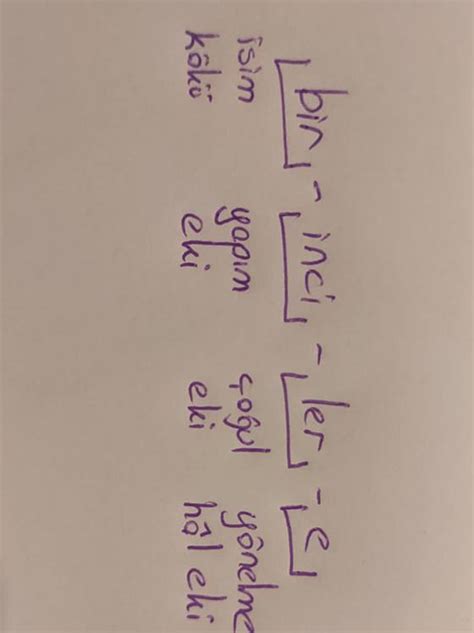 bir - inci - ler - e
isim kökü yapım eki çoğul eki yönelme hâl eki